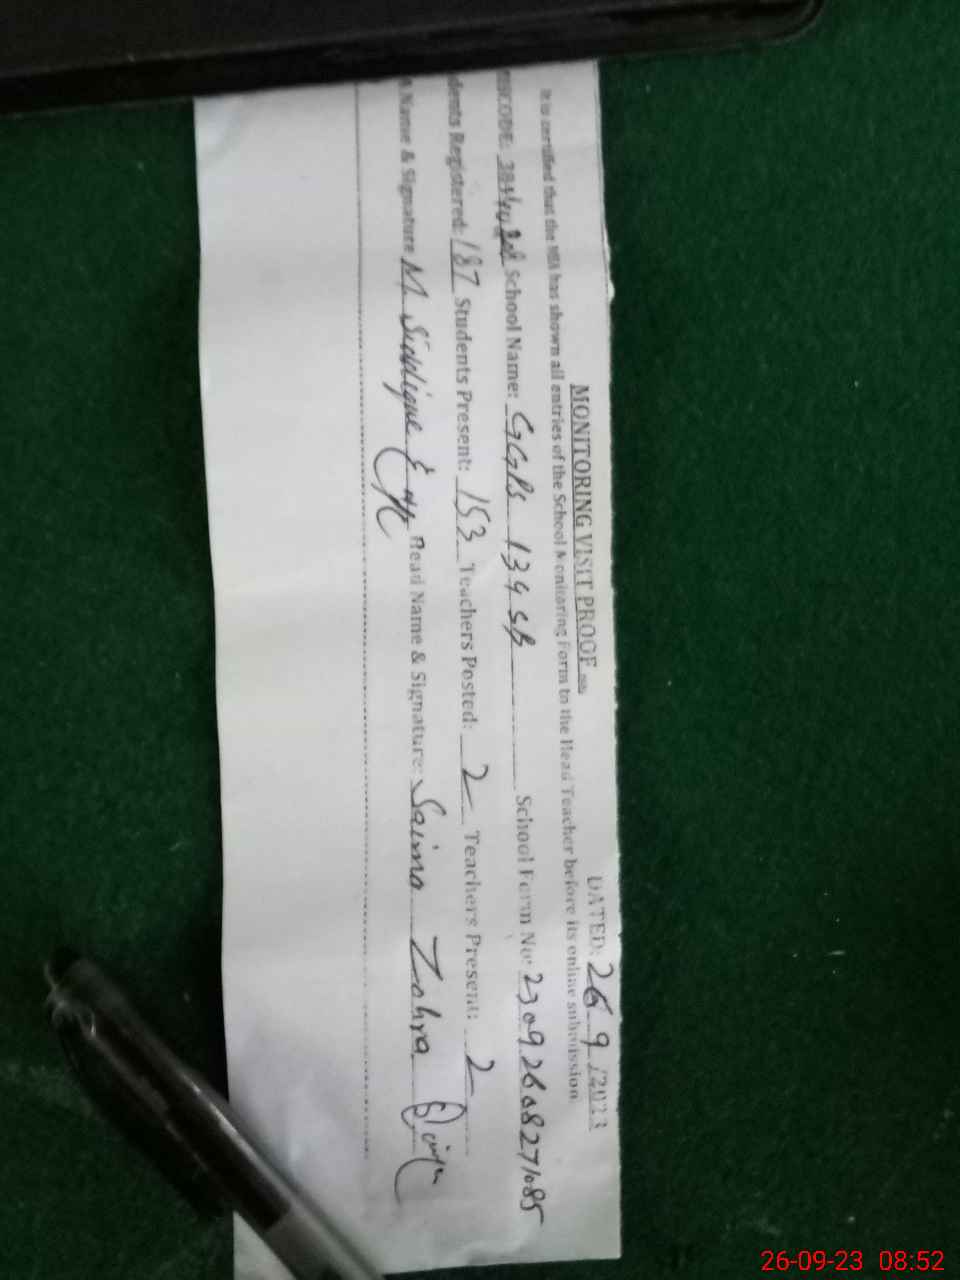 MONITORING VISIT PROOF
DATED: 26 9 /2023
It is certified that the MEA has shown all entries of the School Monitoring Form to the Head Teacher before its online submission.
School Name: GGPS 139 SB School Form No: 23092608271085
dents Registered: 187 Students Present: 153 Teachers Posted: 2 Teachers Present: 2
A Name & Signature M Siddique Head Name & Signature: Saima Zahra
26-09-23 08:52